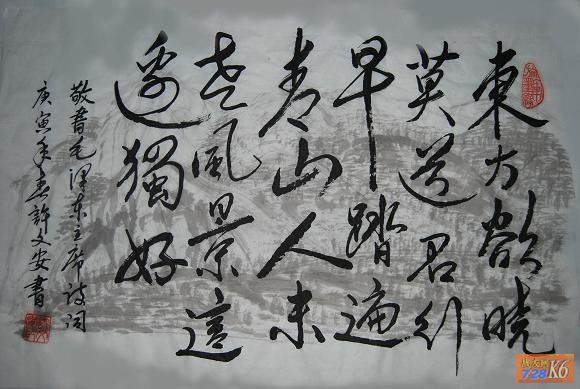 東方欲曉
莫道君行
早踏遍
青山人未
老風景這
邊獨好
敬書毛澤東主席詩詞
庚寅年春許文安書
728K6